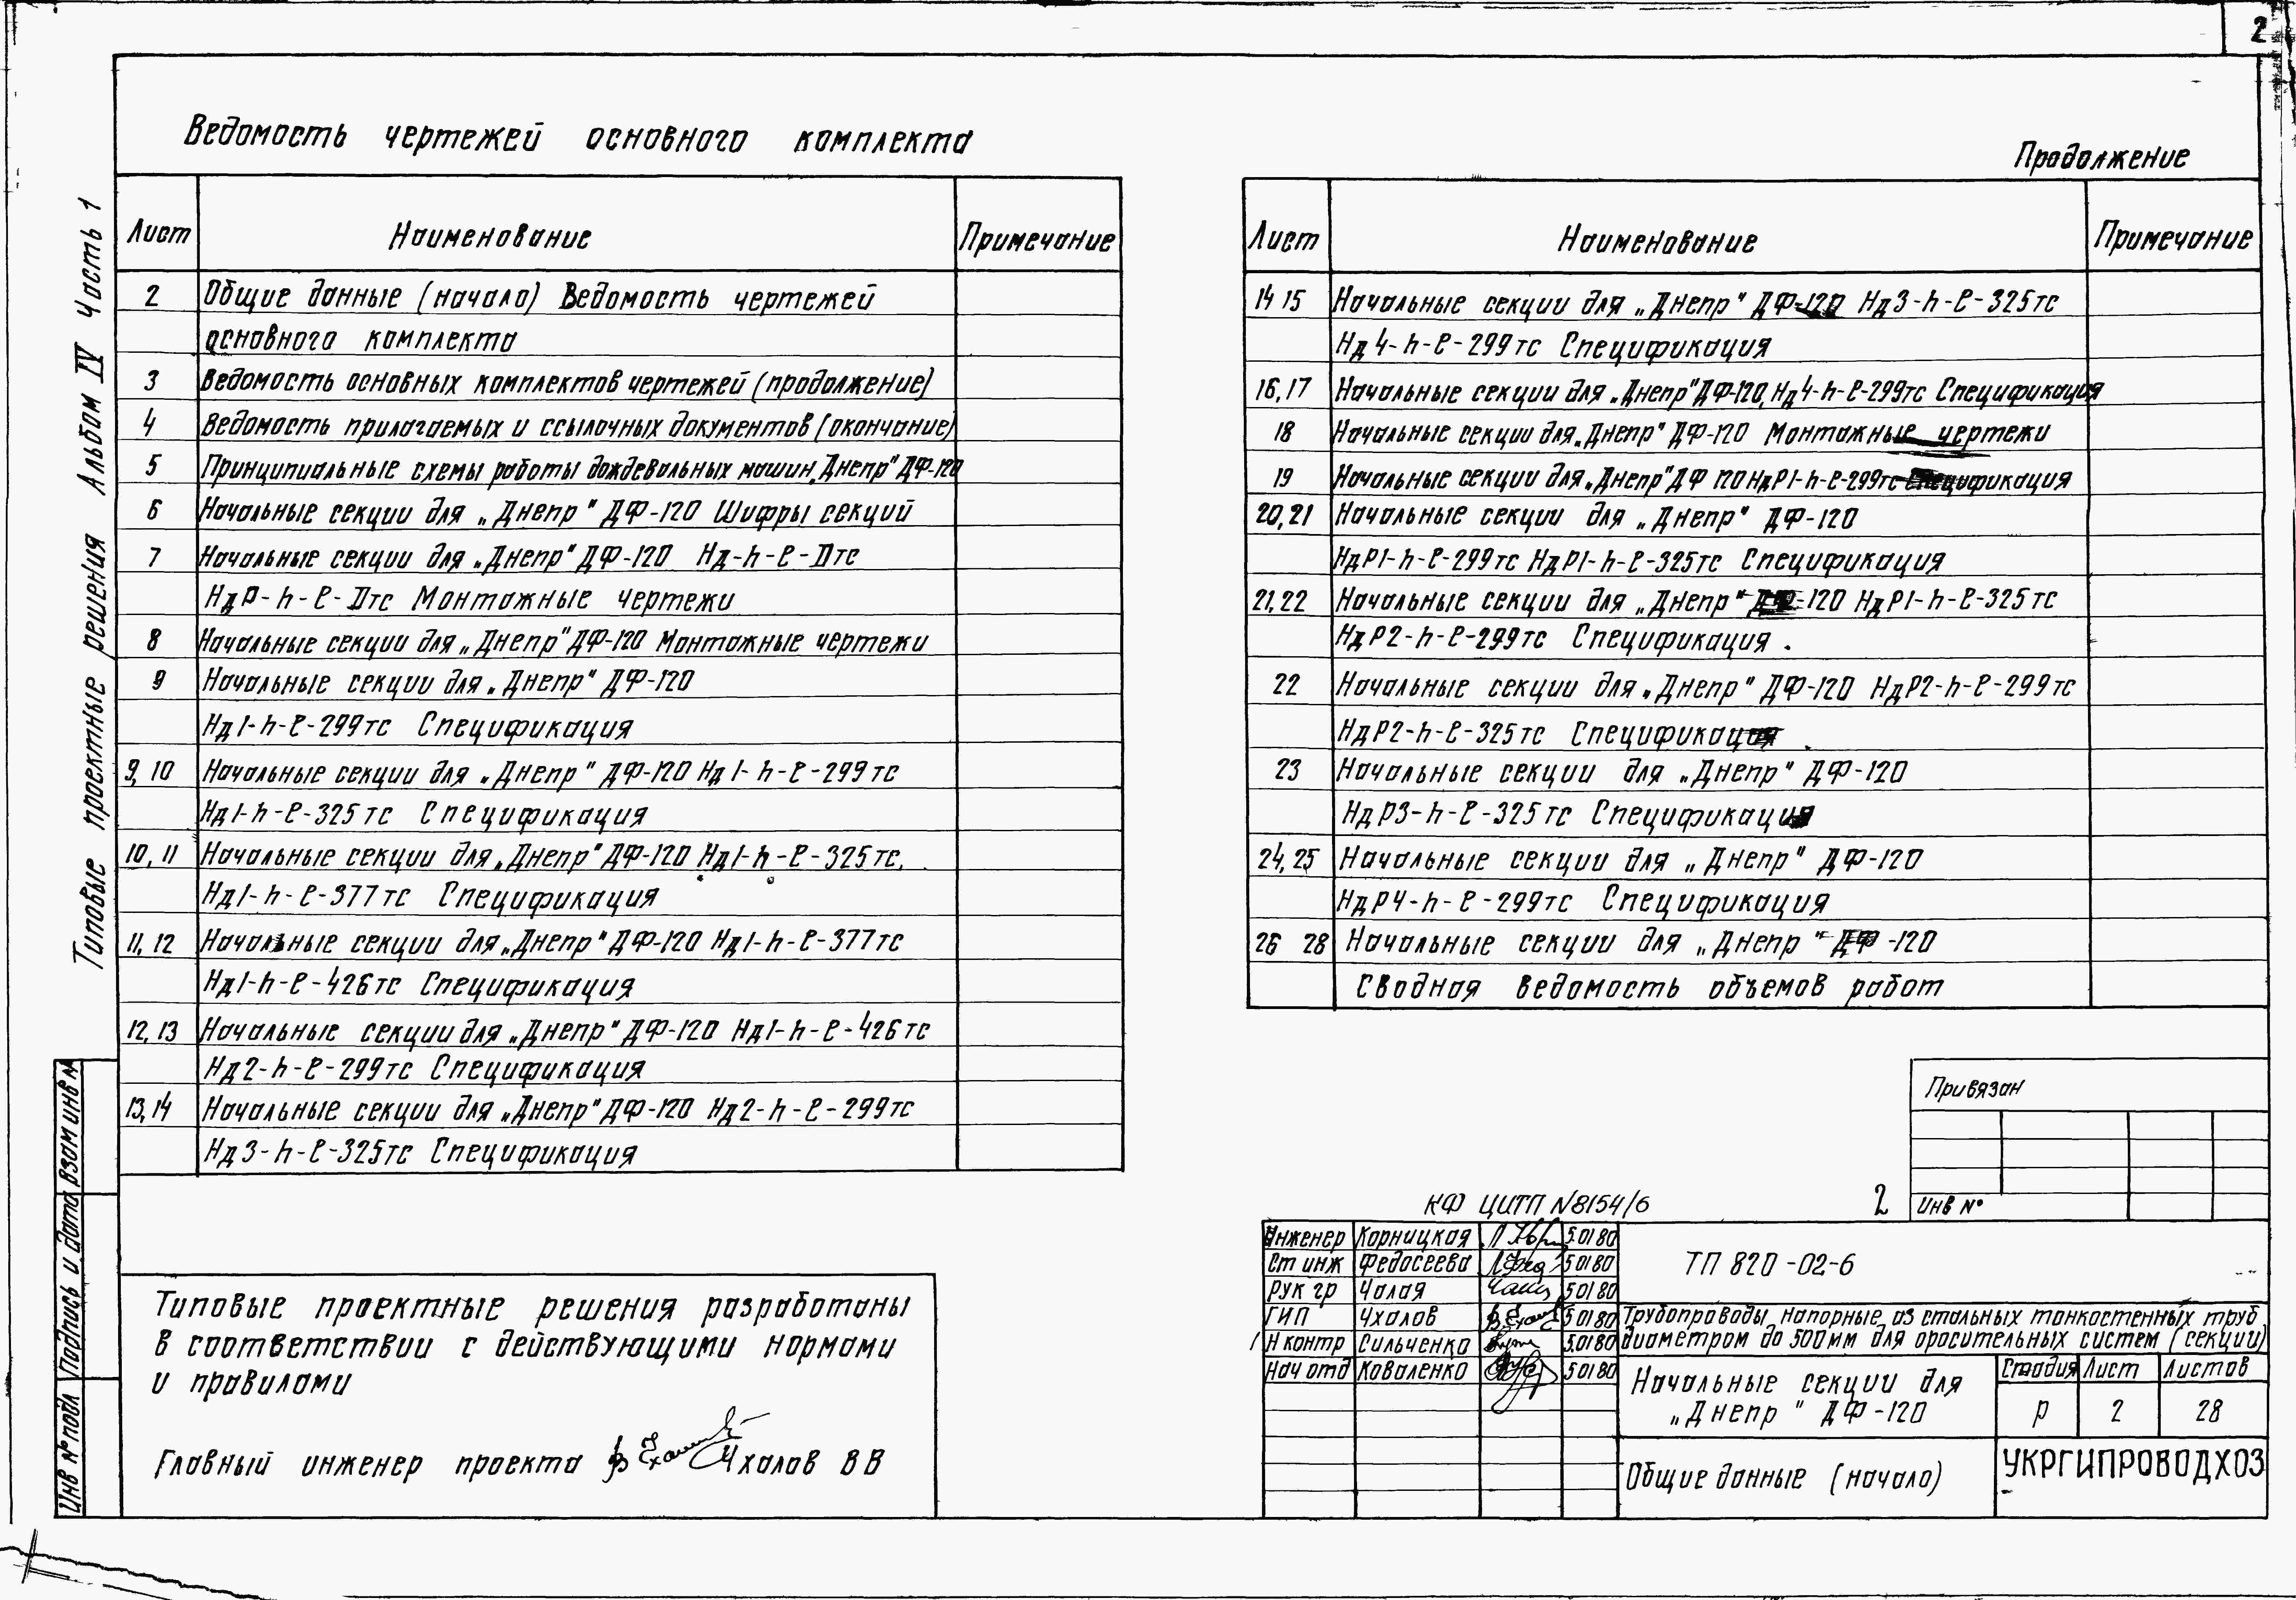 2
Ведомость чертежей основного комплекта
Лист Наименование Примечание
2 Общие данные (начало) Ведомость чертежей
основного комплекта
3 Ведомость основных комплектов чертежей (продолжение)
4 Ведомость прилагаемых и ссылочных документов (окончание)
5 Принципиальные схемы работы дождевальных машин „Днепр" ДФ-120
6 Начальные секции для „Днепр" ДФ-120 Шифры секций
7 Начальные секции для „Днепр" ДФ-120 Нд-h-ℓ-Dтс
НдР-h-ℓ-Dтс Монтажные чертежи
8 Начальные секции для „Днепр" ДФ-120 Монтажные чертежи
9 Начальные секции для „Днепр" ДФ-120
Нд1-h-ℓ-299тс Спецификация
9, 10 Начальные секции для „Днепр" ДФ-120 Нд1-h-ℓ-299тс
Нд1-h-ℓ-325тс Спецификация
10, 11 Начальные секции для „Днепр" ДФ-120 Нд1-h-ℓ-325тс,
Нд1-h-ℓ-377тс Спецификация
11, 12 Начальные секции для „Днепр" ДФ-120 Нд1-h-ℓ-377тс
Нд1-h-ℓ-426тс Спецификация
12, 13 Начальные секции для „Днепр" ДФ-120 Нд1-h-ℓ-426тс
Нд2-h-ℓ-299тс Спецификация
13, 14 Начальные секции для „Днепр" ДФ-120 Нд2-h-ℓ-299тс
Нд3-h-ℓ-325тс Спецификация
Продолжение
Лист Наименование Примечание
14 15 Начальные секции для „Днепр" ДФ-120 Нд3-h-ℓ-325тс
Нд4-h-ℓ-299тс Спецификация
16, 17 Начальные секции для „Днепр" ДФ-120, Нд4-h-ℓ-299тс Спецификация
18 Начальные секции для „Днепр" ДФ-120 Монтажные чертежи
19 Начальные секции для „Днепр" ДФ 120 НдР1-h-ℓ-299тс Спецификация
20, 21 Начальные секции для „Днепр" ДФ-120
НдР1-h-ℓ-299тс НдР1-h-ℓ-325тс Спецификация
21, 22 Начальные секции для „Днепр" ДФ-120 НдР1-h-ℓ-325тс
НдР2-h-ℓ-299тс Спецификация .
22 Начальные секции для „Днепр" ДФ-120 НдР2-h-ℓ-299тс
НдР2-h-ℓ-325тс Спецификация
23 Начальные секции для „Днепр" ДФ-120
НдР3-h-ℓ-325тс Спецификация
24, 25 Начальные секции для „Днепр" ДФ-120
НдР4-h-ℓ-299тс Спецификация
26 28 Начальные секции для „Днепр" ДФ-120
Сводная ведомость объемов работ
Типовые проектные решения Альбом IV Часть 1
Инв № подл Подпись и дата Взам инв №
Типовые проектные решения разработаны
в соответствии с действующими нормами
и правилами
Главный инженер проекта Чхалов В В
Привязан
Инв №
КФ ЦИТП №8154/6 2
Инженер Корницкая 5.01 80
Ст инж Федосеева 5 01 80
Рук гр Чалая 5 01 80
ГИП Чхалов 5 01 80
Н контр Сильченко 5.01 80
Нач отд Коваленко 5 01 80
ТП 820-02-6
Трубопроводы напорные из стальных тонкостенных труб
диаметром до 500мм для оросительных систем (секции)
Начальные секции для
„Днепр" ДФ-120
Стадия Лист Листов
Р 2 28
Общие данные (начало)
УКРГИПРОВОДХОЗ